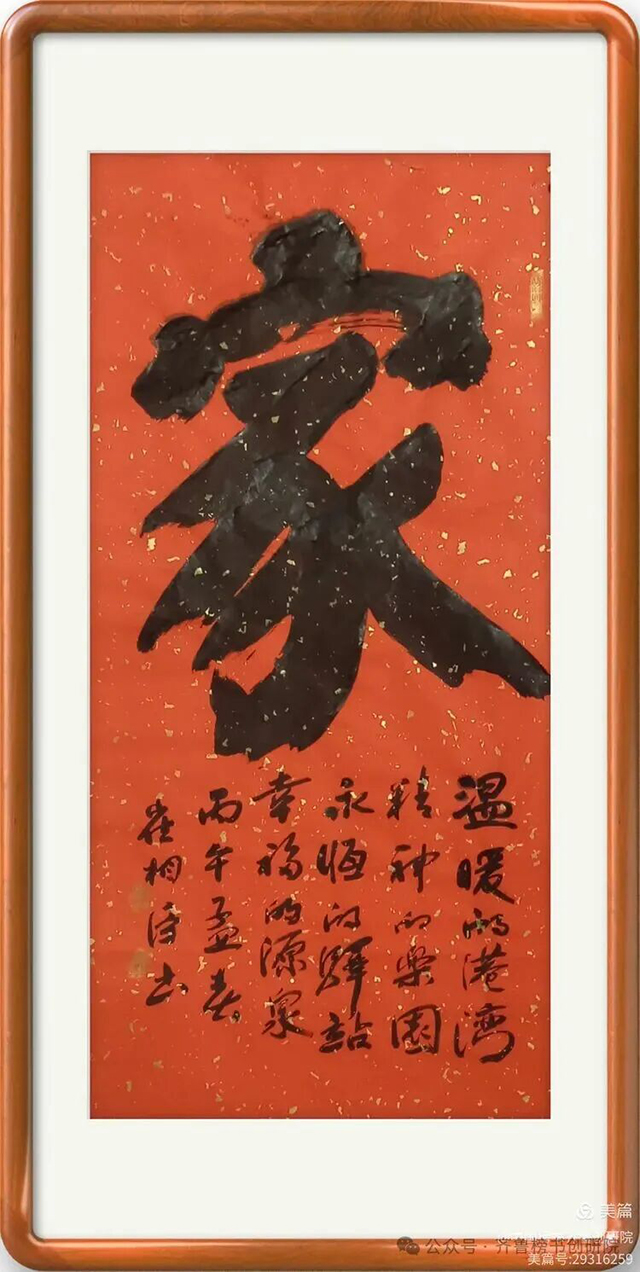 家
溫暖的港湾
精神的樂園
永恒的驿站
幸福的源泉
丙午孟春
崔相
书
美篇
公众号·齐鲁榜书创研院
美篇号:29316259